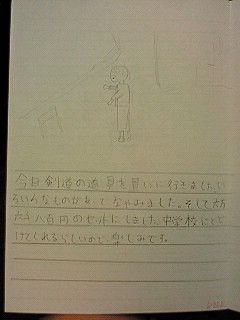 今日剣道の道具を買いに行きました。い
ろいろなものがあってなやみました。そして六万
六千八百円のセットにしました。中学校にとど
けてくれるらしいので、楽しみです。